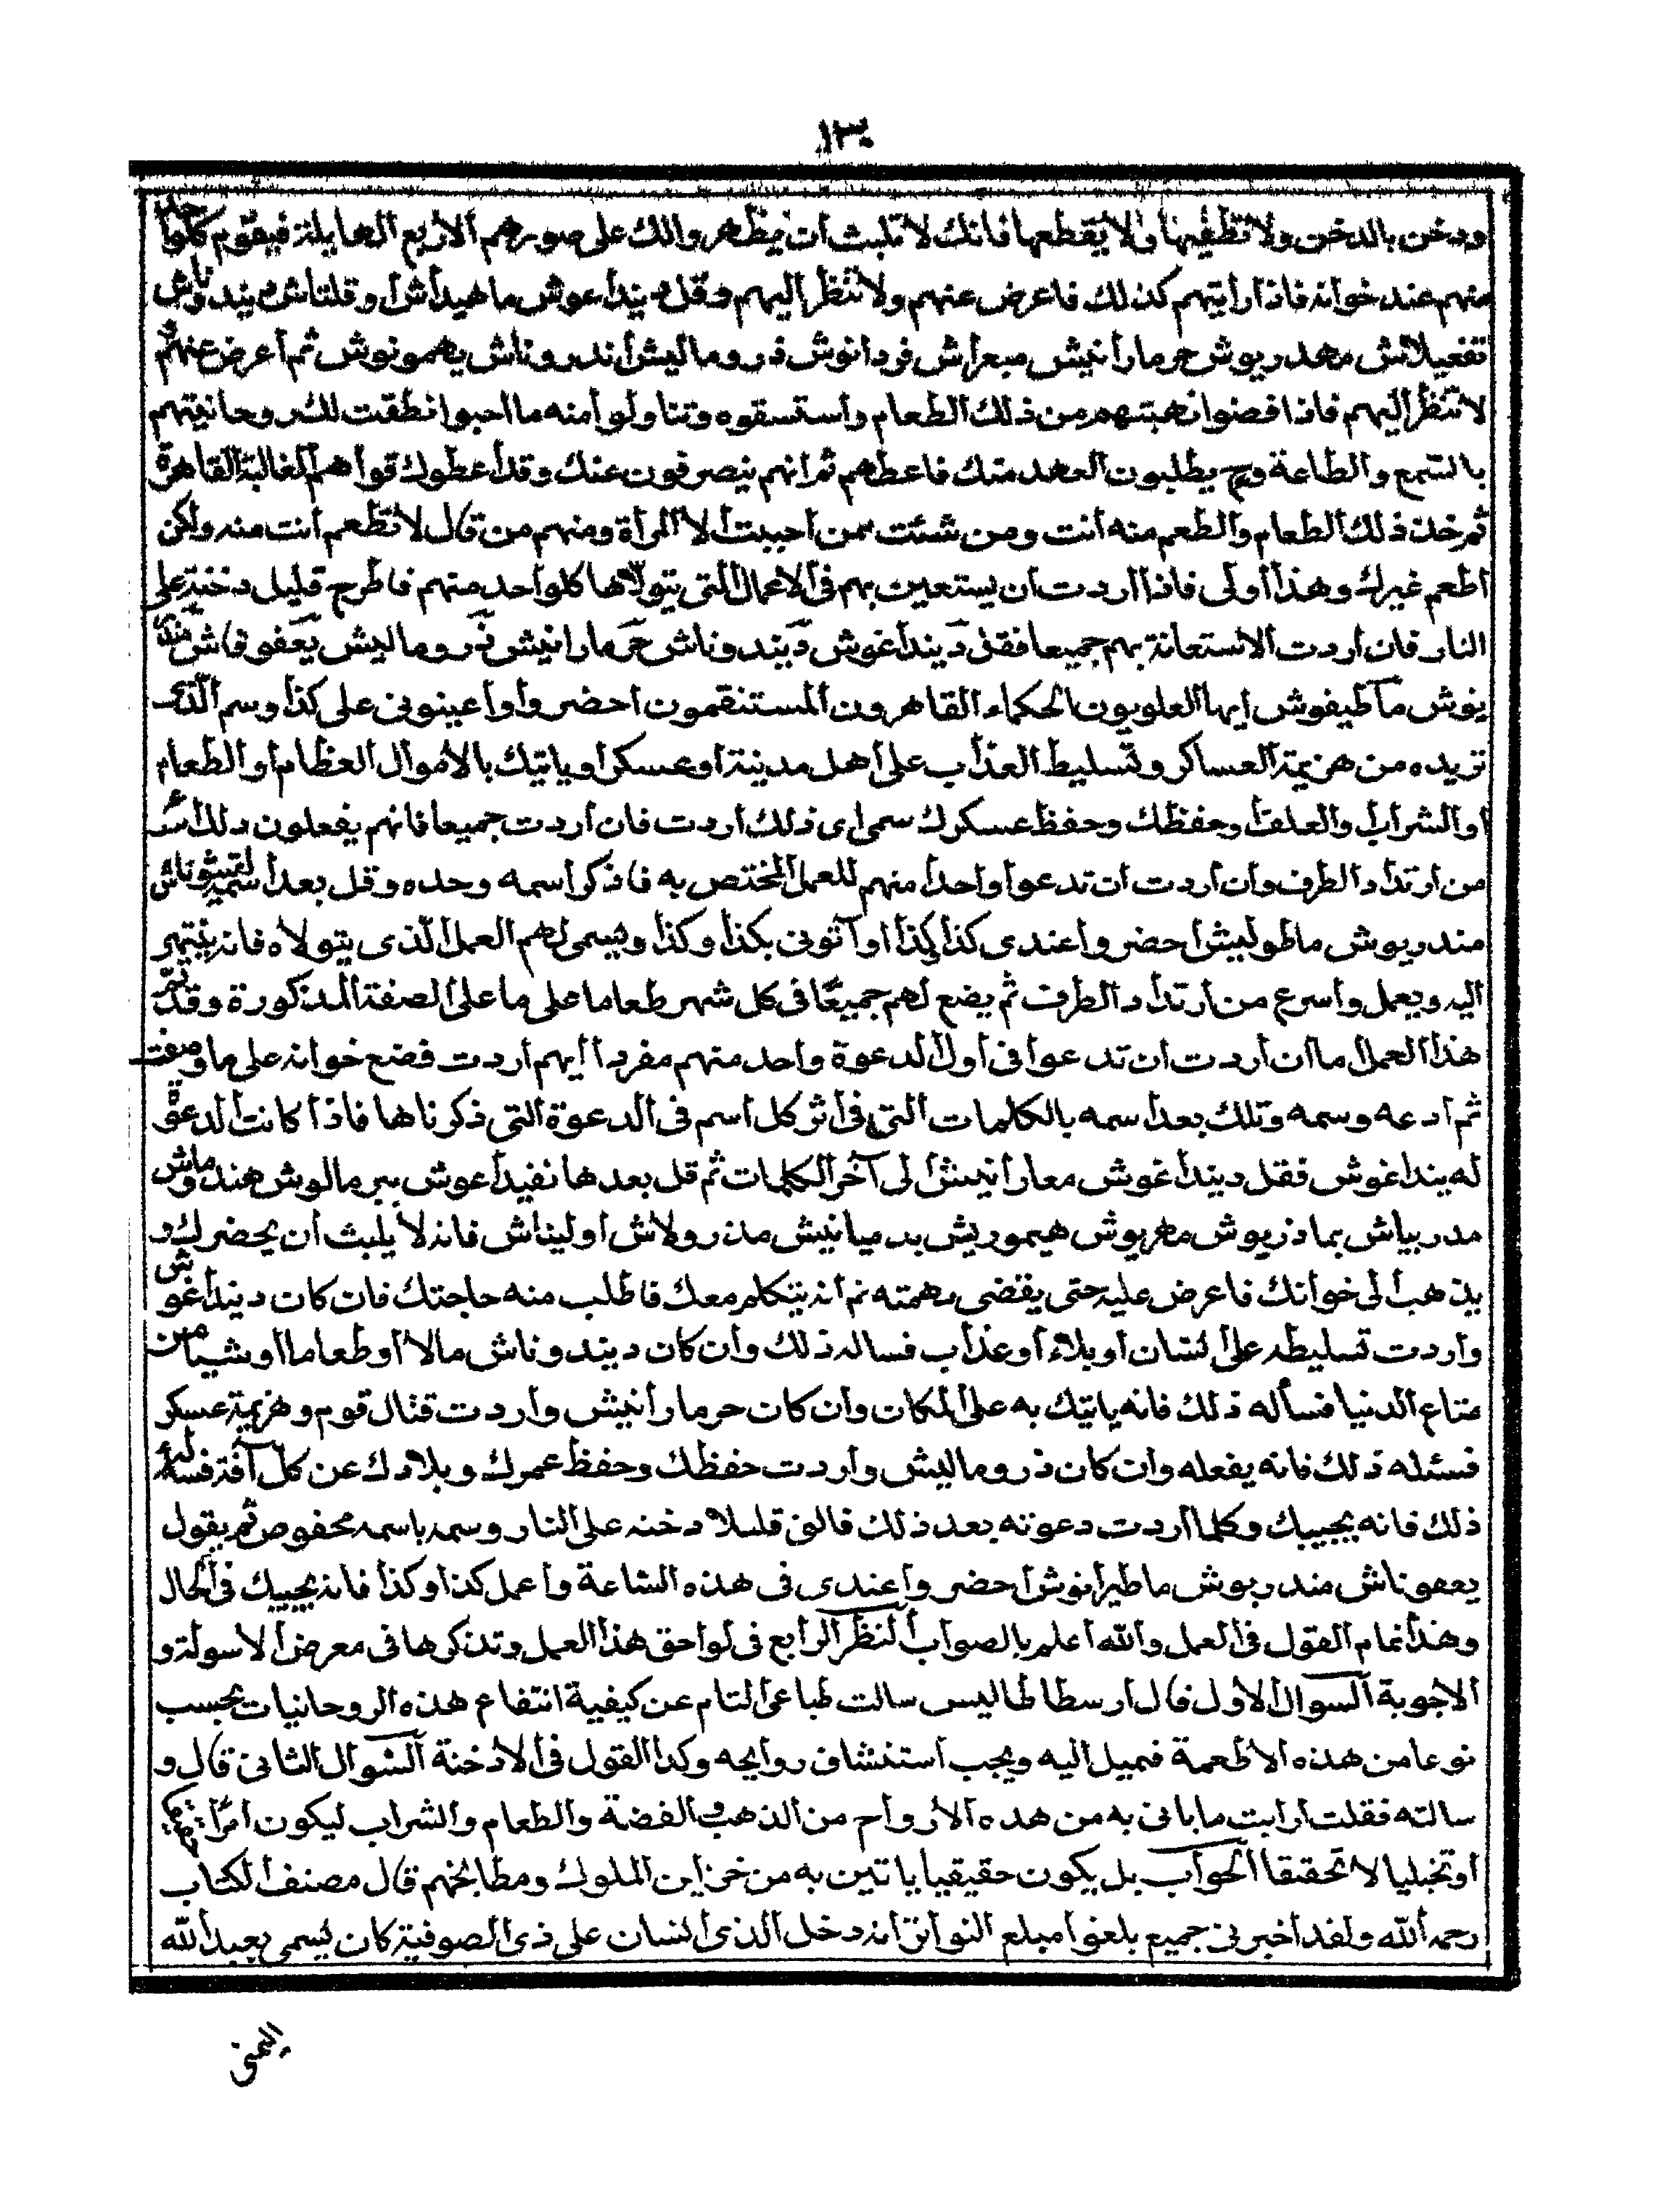 ١٣٠
ودخن بالدخن ولا تطفيها ولا يقطعها فانك لا تلبث ان يظهر والك على صورهم الاربع الهايلة فيقوم كلواحد
منهم عند خوانه فاذا رايتهم كذلك فاعرض عنهم ولا تنظر اليهم وقل ديندا عوش ما هيداش ا وقلتاش ديندوناش
تفعيلاتش مهدريوش حرمارانيش مبعراش فردانوش ذروماليش اندروناش يهمونوش ثم اعرض عنهم و
لا تنظر اليهم فاذا قضوا نهمتهم من ذلك الطعام واستسقوه وتناولوا منه ما احبوا نطقت لك روحانيتهم
بالسمع والطاعة وح يطلبون العهد منك فاعطهم ثم انهم ينصرفون عنك وقد اعطوك قواهم الغالبة القاهرة
ثم خذ ذلك الطعام والطعم منه انت ومن شئت ممن احببت الا المراة ومنهم من قال لا تطعم انت منه ولكن
اطعم غيرك وهذا اولى فاذا اردت ان يستعين بهم في الاعمال التي يتولاها كلواحد منهم فاطرح قليل دخنة على
النار فان اردت الاستعانة بهم جميعا فقل ديندا غوش ديندوناش حرمارانيش ذروماليش يعفوناش مند
يوش ماطيفوش ايها العلويون الحكماء القاهرون المستنقمون احضروا واعينوني على كذا وسم الذي
تريده من هزيمة العساكر وتسليط العذاب على اهل مدينة او عسكر او ياتيك بالاموال العظام او الطعام
او الشراب والعلف او حفظك وحفظ عسكرك سم اي ذلك اردت فان اردت جميعا فانهم يفعلون ذلك اسرع
من ارتداد الطرف وان اردت ان تدعوا واحدا منهم للعمل المختص به فاذكر اسمه وحده وقل بعد اسمه
مندريوش ماطوليش احضر واعندي كذا كذا او آتوني بكذا وكذا ويسمي لهم العمل الذي يتولاه فانه ينتهي
اليه ويعمل واسرع من ارتداد الطرف ثم يضع لهم جميعا في كل شهر طعاما على ما على الصفة المذكورة وقد تم
هذا العمل اما ان اردت ان تدعوا في اول الدعوة واحد منهم مفردا ايهم اردت فضع خوانه على ما وصفت
ثم ادعه وسمه وتلك بعد اسمه بالكلمات التي في اثر كل اسم في الدعوة التي ذكرناها فاذا كانت الدعوة
له بيندا غوش فقل ديندا غوش معارانيش الى آخر الكلمات ثم قل بعدها نفيدا عوش ببر مالوش هندوماش
مدربياش بماذريوش مهريوش هيموريش بدميانيش مندرولاش اوليناش فانه لا يلبث ان يحضرك و
يذهب الى خوانك فاعرض عليه حتى يقضي مهمته ثم انه يتكلم معك فاطلب منه حاجتك فان كان ديندا غوش
واردت تسليطه على انسان او بلاء او عذاب فساله ذلك وان كان ديندوناش مالا او طعاما او شيئا من
متاع الدنيا فسأله ذلك فانه ياتيك به على المكان وان كان حرمارانيش واردت قتال قوم وهزيمة عسكر
فسئله ذلك فانه يفعله وان كان ذروماليش واردت حفظك وحفظ عمرك وبلادك عن كل آفة فسئله
ذلك فانه يجيبك وكلما اردت دعوته بعد ذلك فالق قليلا دخنه على النار وسمه باسمه مخفوص ثم يقول
يعفوناش مندريوش ماطيرانوش احضر واعندي في هذه الساعة واعمل كذا وكذا فانه يجيبك في الحال
وهذا تمام القول في العمل والله اعلم بالصواب النظر الرابع في لواحق هذا العمل وتذكرها في معرض الاسولة و
الاجوبة السوال الاول قال ارسطاطاليس سالت طباعي التام عن كيفية انتفاع هذه الروحانيات بحسب
نوعا من هذه الاطعمة فيميل اليه ويجب استنشاق روايحه وكذا القول في الادخنة السوال الثاني قال و
سالته فقلت ارايت ما ياتي به من هذه الارواح من الذهب والفضة والطعام والشراب ليكون امرا
او تخيليا لا تحقيقا الجواب بل يكون حقيقيا ياتين به من خزاين الملوك ومطابخهم قال مصنف الكتاب
رحمه الله ولقد اخبرني جميع بلغوا مبلغ التواتر انه دخل الذي انسان على ذي الصوفية كان يسمى بعبد الله
اليمني